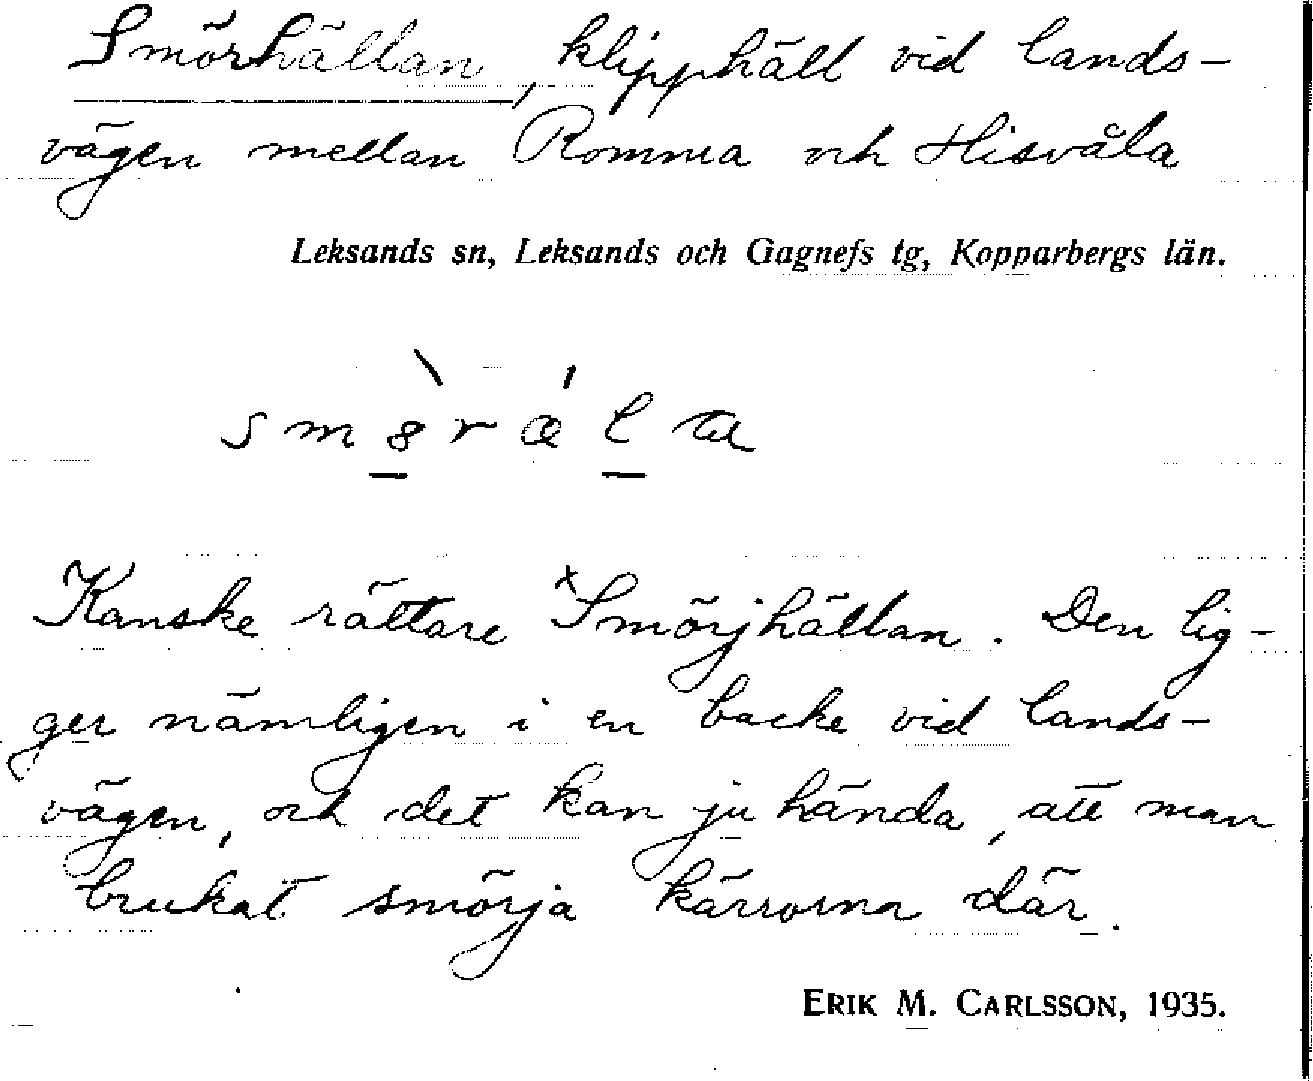 Smörhällan, klipphäll vid lands-
vägen mellan Romma och Hisvåla
Leksands sn, Leksands och Gagnefs tg, Kopparbergs län.
Kanske rättare ˣSmörjhällan. Den lig-
ger nämligen i en backe vid lands-
vägen, och det kan ju hända, att man
brukat smörja kärrorna där.
ERIK M. CARLSSON, 1935.